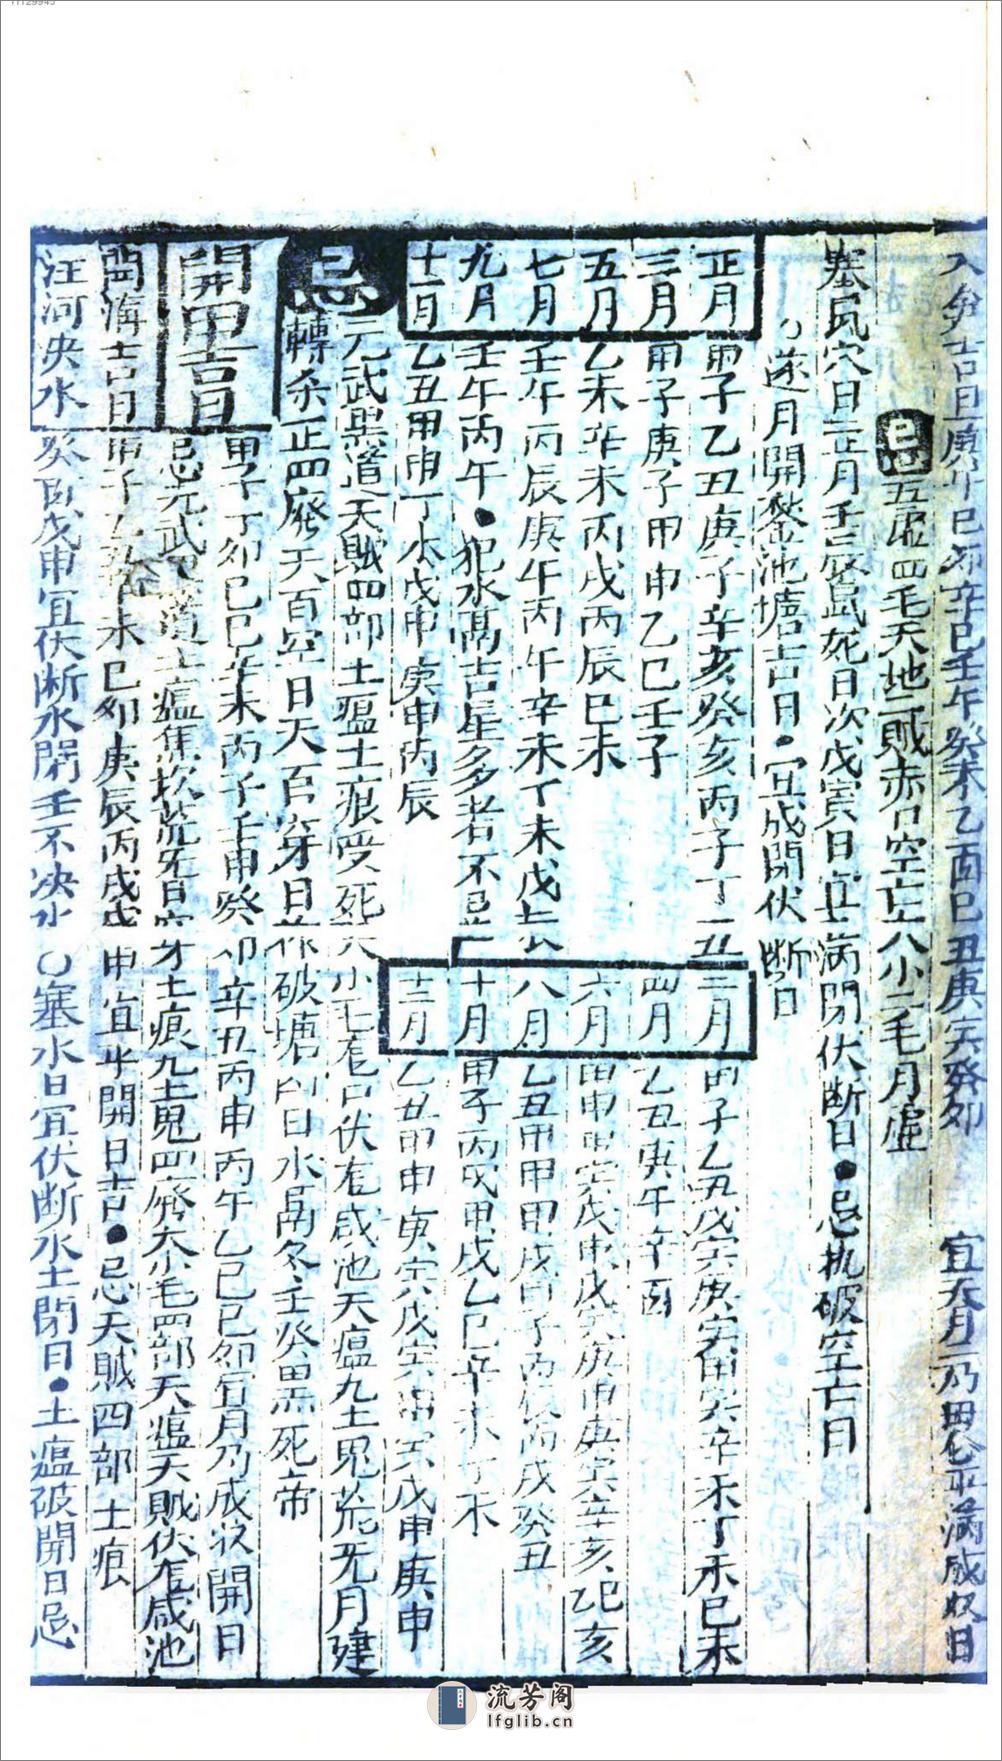 11129945
吉日庚午己卯辛巳壬午癸未乙酉己丑庚寅癸卯 宜天月二乃成收日
忌五虛四毛天地二賊赤口空亡大小二毛月虛
塞鼠穴日正月壬辰鼠死日次戊寅日宜滿閉伏斷日●忌執破空亡日
○逐月開鑿池塘吉日●宜成開伏斷日
正月甲子乙丑庚子辛亥癸亥丙子丁丑
二月甲子乙丑戊寅庚寅甲寅辛未丁未己未
三月甲子庚子甲申乙巳壬子
四月乙丑庚午辛酉
五月乙未辛未丙戌丙辰己未
六月甲申甲寅戊申戊寅庚申庚寅辛亥己亥
七月壬午丙辰庚午丙午辛未丁未戊辰
八月乙丑甲申甲戌甲子丙戌癸丑
九月壬午丙午●犯水鬲吉星多者不忌
十月甲子丙戌甲戌乙巳辛未丁未
十一月乙丑甲申丁未戊申庚申丙辰
十二月乙丑甲申庚寅戊寅甲寅戊申庚申
忌元武黑道天賊四部土瘟土痕受死大小毛龙口伏龙咸池天瘟九土鬼荒无月建
轉杀正四廢天百空日天百穿日破塘日水鬲冬壬癸黑死帝
開甲吉日甲子丁卯己巳辛未丙子壬申癸卯辛丑丙申丙午乙巳己卯月乃成收開日
忌元武黑道土瘟焦坎荒土痕九土鬼四廢大小毛四部天瘟天賊伏龙咸池
開海吉日甲子未己卯庚辰丙戌戊申宜平開日吉●忌天賊四部土痕
江河決水癸酉戊申宜伏斷水閉壬不決水○塞水日宜伏斷水土閉日●土瘟破開日忌
流芳阁
lfglib.cn